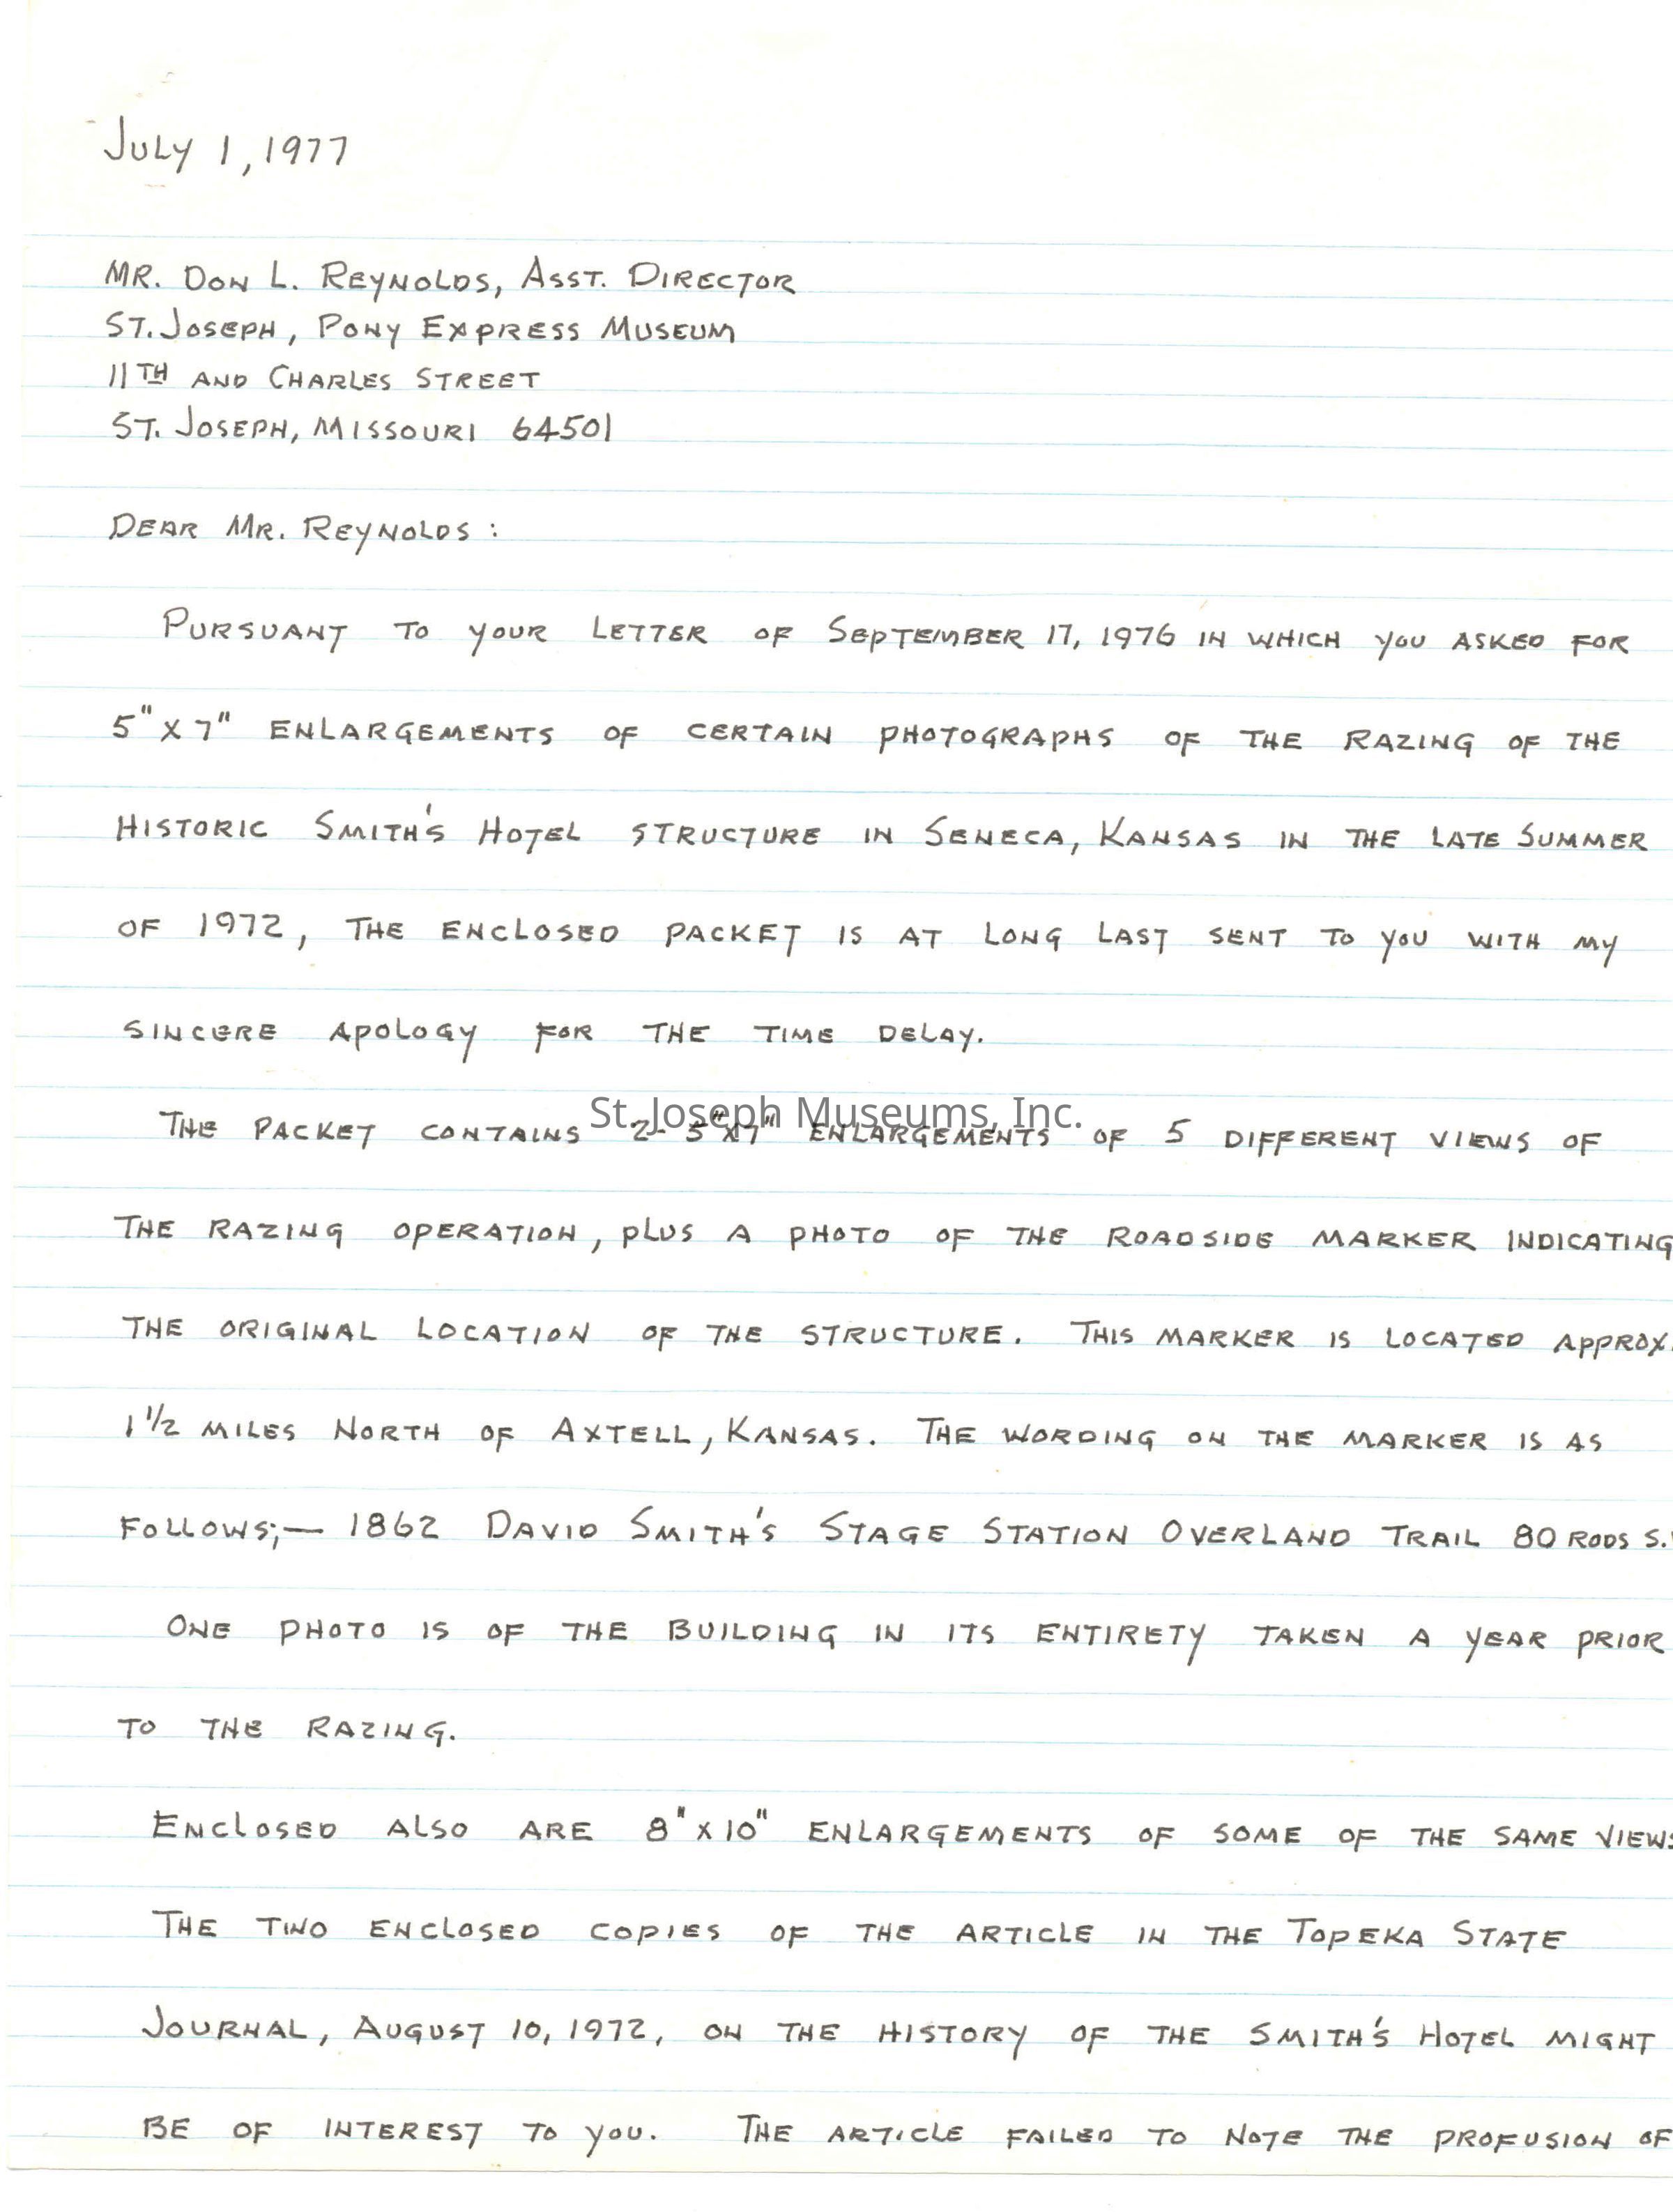 July 1, 1977
Mr. Don L. Reynolds, Asst. Director
St. Joseph, Pony Express Museum
11th and Charles Street
St. Joseph, Missouri 64501
Dear Mr. Reynolds:
Pursuant to your letter of September 17, 1976 in which you asked for
5" x 7" enlargements of certain photographs of the razing of the
historic Smith's Hotel structure in Seneca, Kansas in the late Summer
of 1972, the enclosed packet is at long last sent to you with my
sincere apology for the time delay.
St. Joseph Museums, Inc.
The packet contains 2- 5"x7" enlargements of 5 different views of
the razing operation, plus a photo of the roadside marker indicating
the original location of the structure. This marker is located approx.
1 1/2 miles North of Axtell, Kansas. The wording on the marker is as
follows;— 1862 David Smith's Stage Station Overland Trail 80 rods S.
One photo is of the building in its entirety taken a year prior
to the razing.
Enclosed also are 8" x 10" enlargements of some of the same views
The two enclosed copies of the article in the Topeka State
Journal, August 10, 1972, on the history of the Smith's Hotel might
be of interest to you. The article failed to note the profusion of